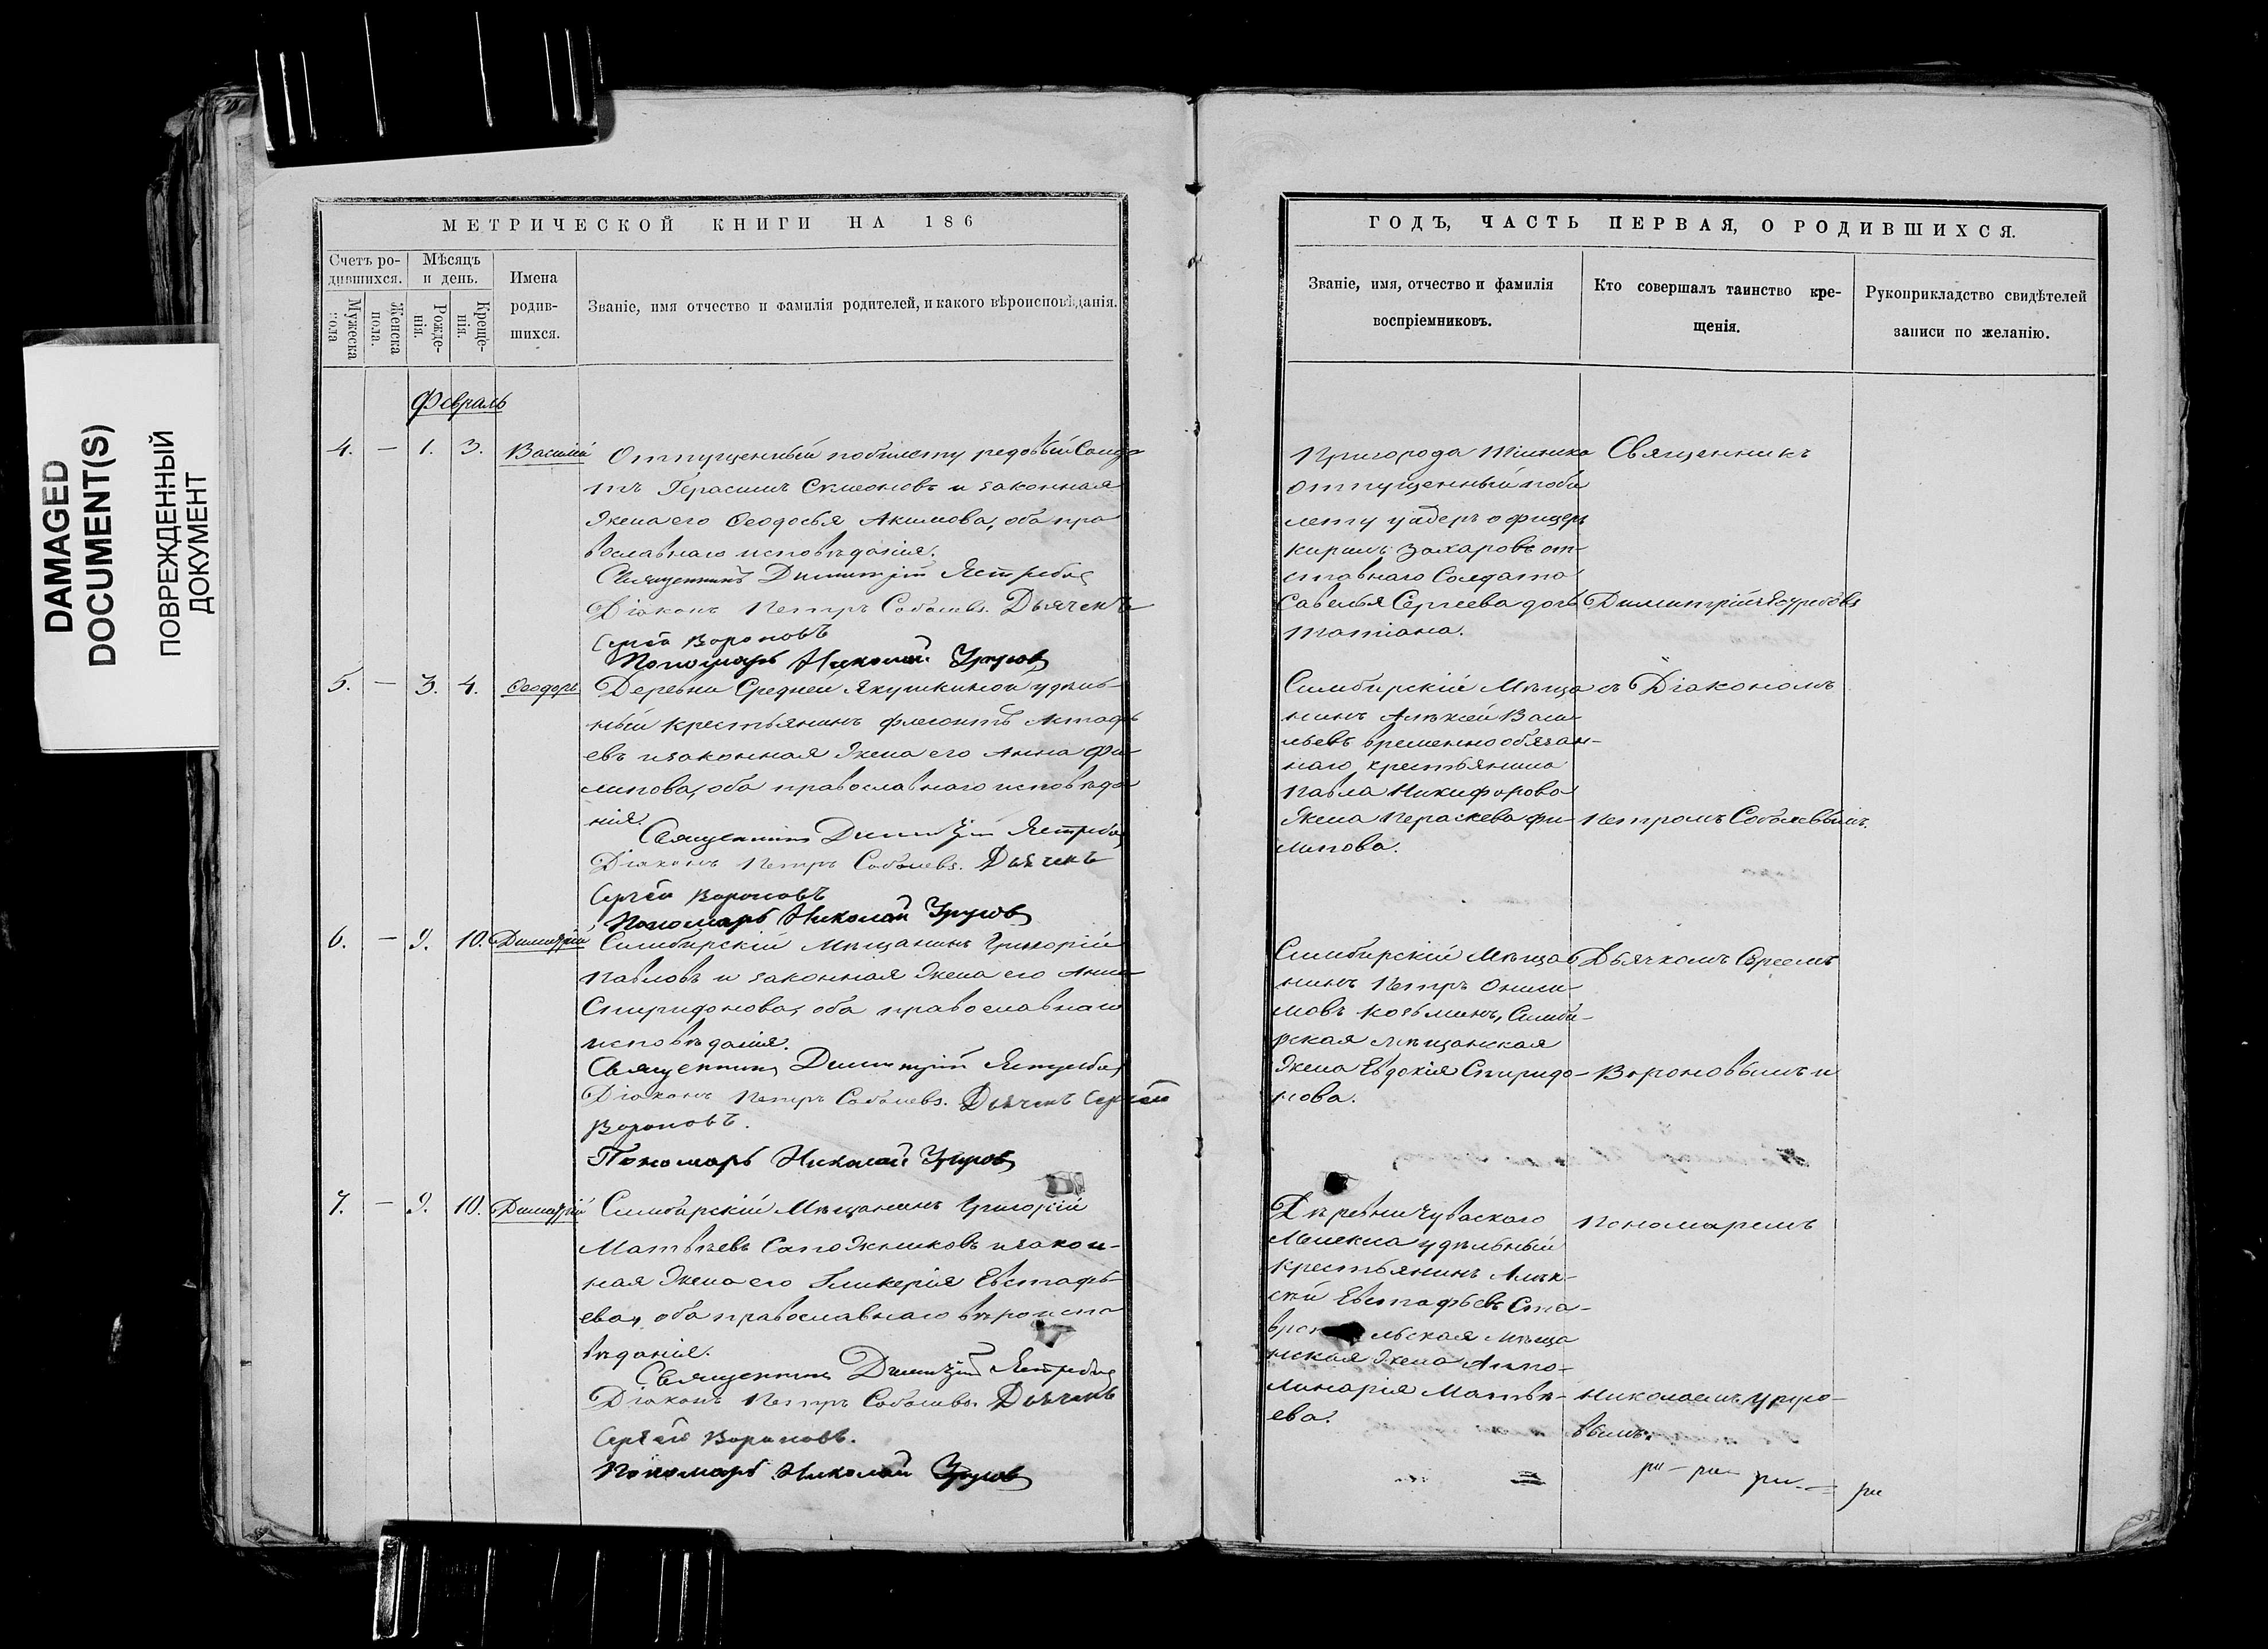 DAMAGED
DOCUMENT(S)
ПОВРЕЖДЕННЫЙ
ДОКУМЕНТ
МЕТРИЧЕСКОЙ КНИГИ НА 186
Счетъ ро-
дившихся.
Мѣсяцъ
и день.
Мужеска
пола
Женска
пола.
Рожде-
нія.
Креще-
нія.
Имена
родив-
шихся.
Званіе, имя отчество и фамилія родителей, и какого вѣроисповѣданія.
Февраль
4. — 1. 3. Василій
Отпущенный побилету редовый Солда
тъ Герасимъ Симеоновъ и законная
жена его Ѳеодосья Акимова, оба пра
вославнаго исповѣданія.
Священникъ Димитрій Ястребовъ
Діаконъ Петръ Соболевъ. Дьячекъ
Сергѣй Вороновъ
Пономарь Николай
5. — 3. 4. Ѳеодоръ
Деревни Средней Якушкиной удѣль
ный крестьянинъ Астафь
евъ изаконная жена его Анна Фи
липова, оба православнаго исповѣда
нія.
Священникъ Димитрій Ястребовъ
Діаконъ Петръ Соболевъ. Дьячекъ
Сергѣй Вороновъ
Пономарь Николай
6. — 9. 10. Димитрій
Симбирскій Мѣщанинъ Григорій
Павловъ и законная жена его Анна
Спиридонова, оба православнаго
исповѣданія.
Священникъ Димитрій Ястребовъ
Діаконъ Петръ Соболевъ. Дьячекъ Сергѣй
Вороновъ.
Пономарь Николай
7. — 9. 10. Димитрій
Симбирскій Мѣщанинъ Григорій
Матвѣевъ Сапожниковъ изакон-
ная жена его Гликерія Евстафь
ева, оба православнаго вѣроиспо
вѣданія.
Священникъ Димитрій Ястребовъ
Діаконъ Петръ Соболевъ. Дьячекъ
Сергѣй Вороновъ.
Пономарь Николай
ГОДЪ, ЧАСТЬ ПЕРВАЯ, О РОДИВШИХСЯ.
Званіе, имя, отчество и фамилія
воспріемниковъ.
Кто совершалъ таинство кре-
щенія.
Рукоприкладство свидѣтелей
записи по желанію.
Пригорода Тіинска
отпущенный поби
лету ундеръ офицеръ
Кирилъ Захаровъ от-
ставнаго Солдата
Савелья Сергеева дочь
Татіана.
Священникъ
Димитрій Ястребовъ
Симбирскій Мѣща
нинъ Алѣксей Васи-
льевъ временно обязан-
наго крестьянина
Павла Никифорова
жена Пераскева Фи-
липова.
съ Діакономъ
Петромъ Соболевымъ.
Симбирскій Мѣща
нинъ ПетръОниси-
мовъ Козьминъ, Симби-
рская мѣщанская
жена Евдокія Спиридо-
нова.
Дьячкомъ Сергеемъ
Вороновымъ и
Дѣревни Чуваскаго
Мелекеса удѣльный
крестьянинъ Алѣк-
сѣй Евстафьевъ Ста-
льская мѣща
нская жена Апо-
линарія Матвѣ-
ева.
Пономаремъ
Николаемъ
вымъ.